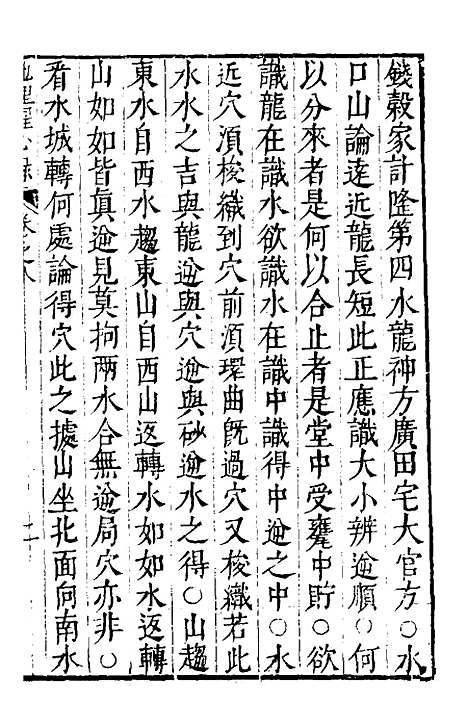 錢穀家計隆第四水龍神方廣田宅大官方○水
口山論遠近龍長短此正應識大小辨逆順○何
以分來者是何以合止者是堂中受甕中貯○欲
識龍在識水欲識水在識中識得中逆之中○水
近穴湏梭織到穴前湏環曲旣過穴又梭織若此
水水之吉與龍逆與穴逆與砂逆水之得○山趨
東水自西水趨東山自西山返轉水如如水返轉
山如如皆眞逆見莫拘兩水合無逆局穴亦非○
看水城轉何處論得穴此之據山坐北面向南水
卷之八